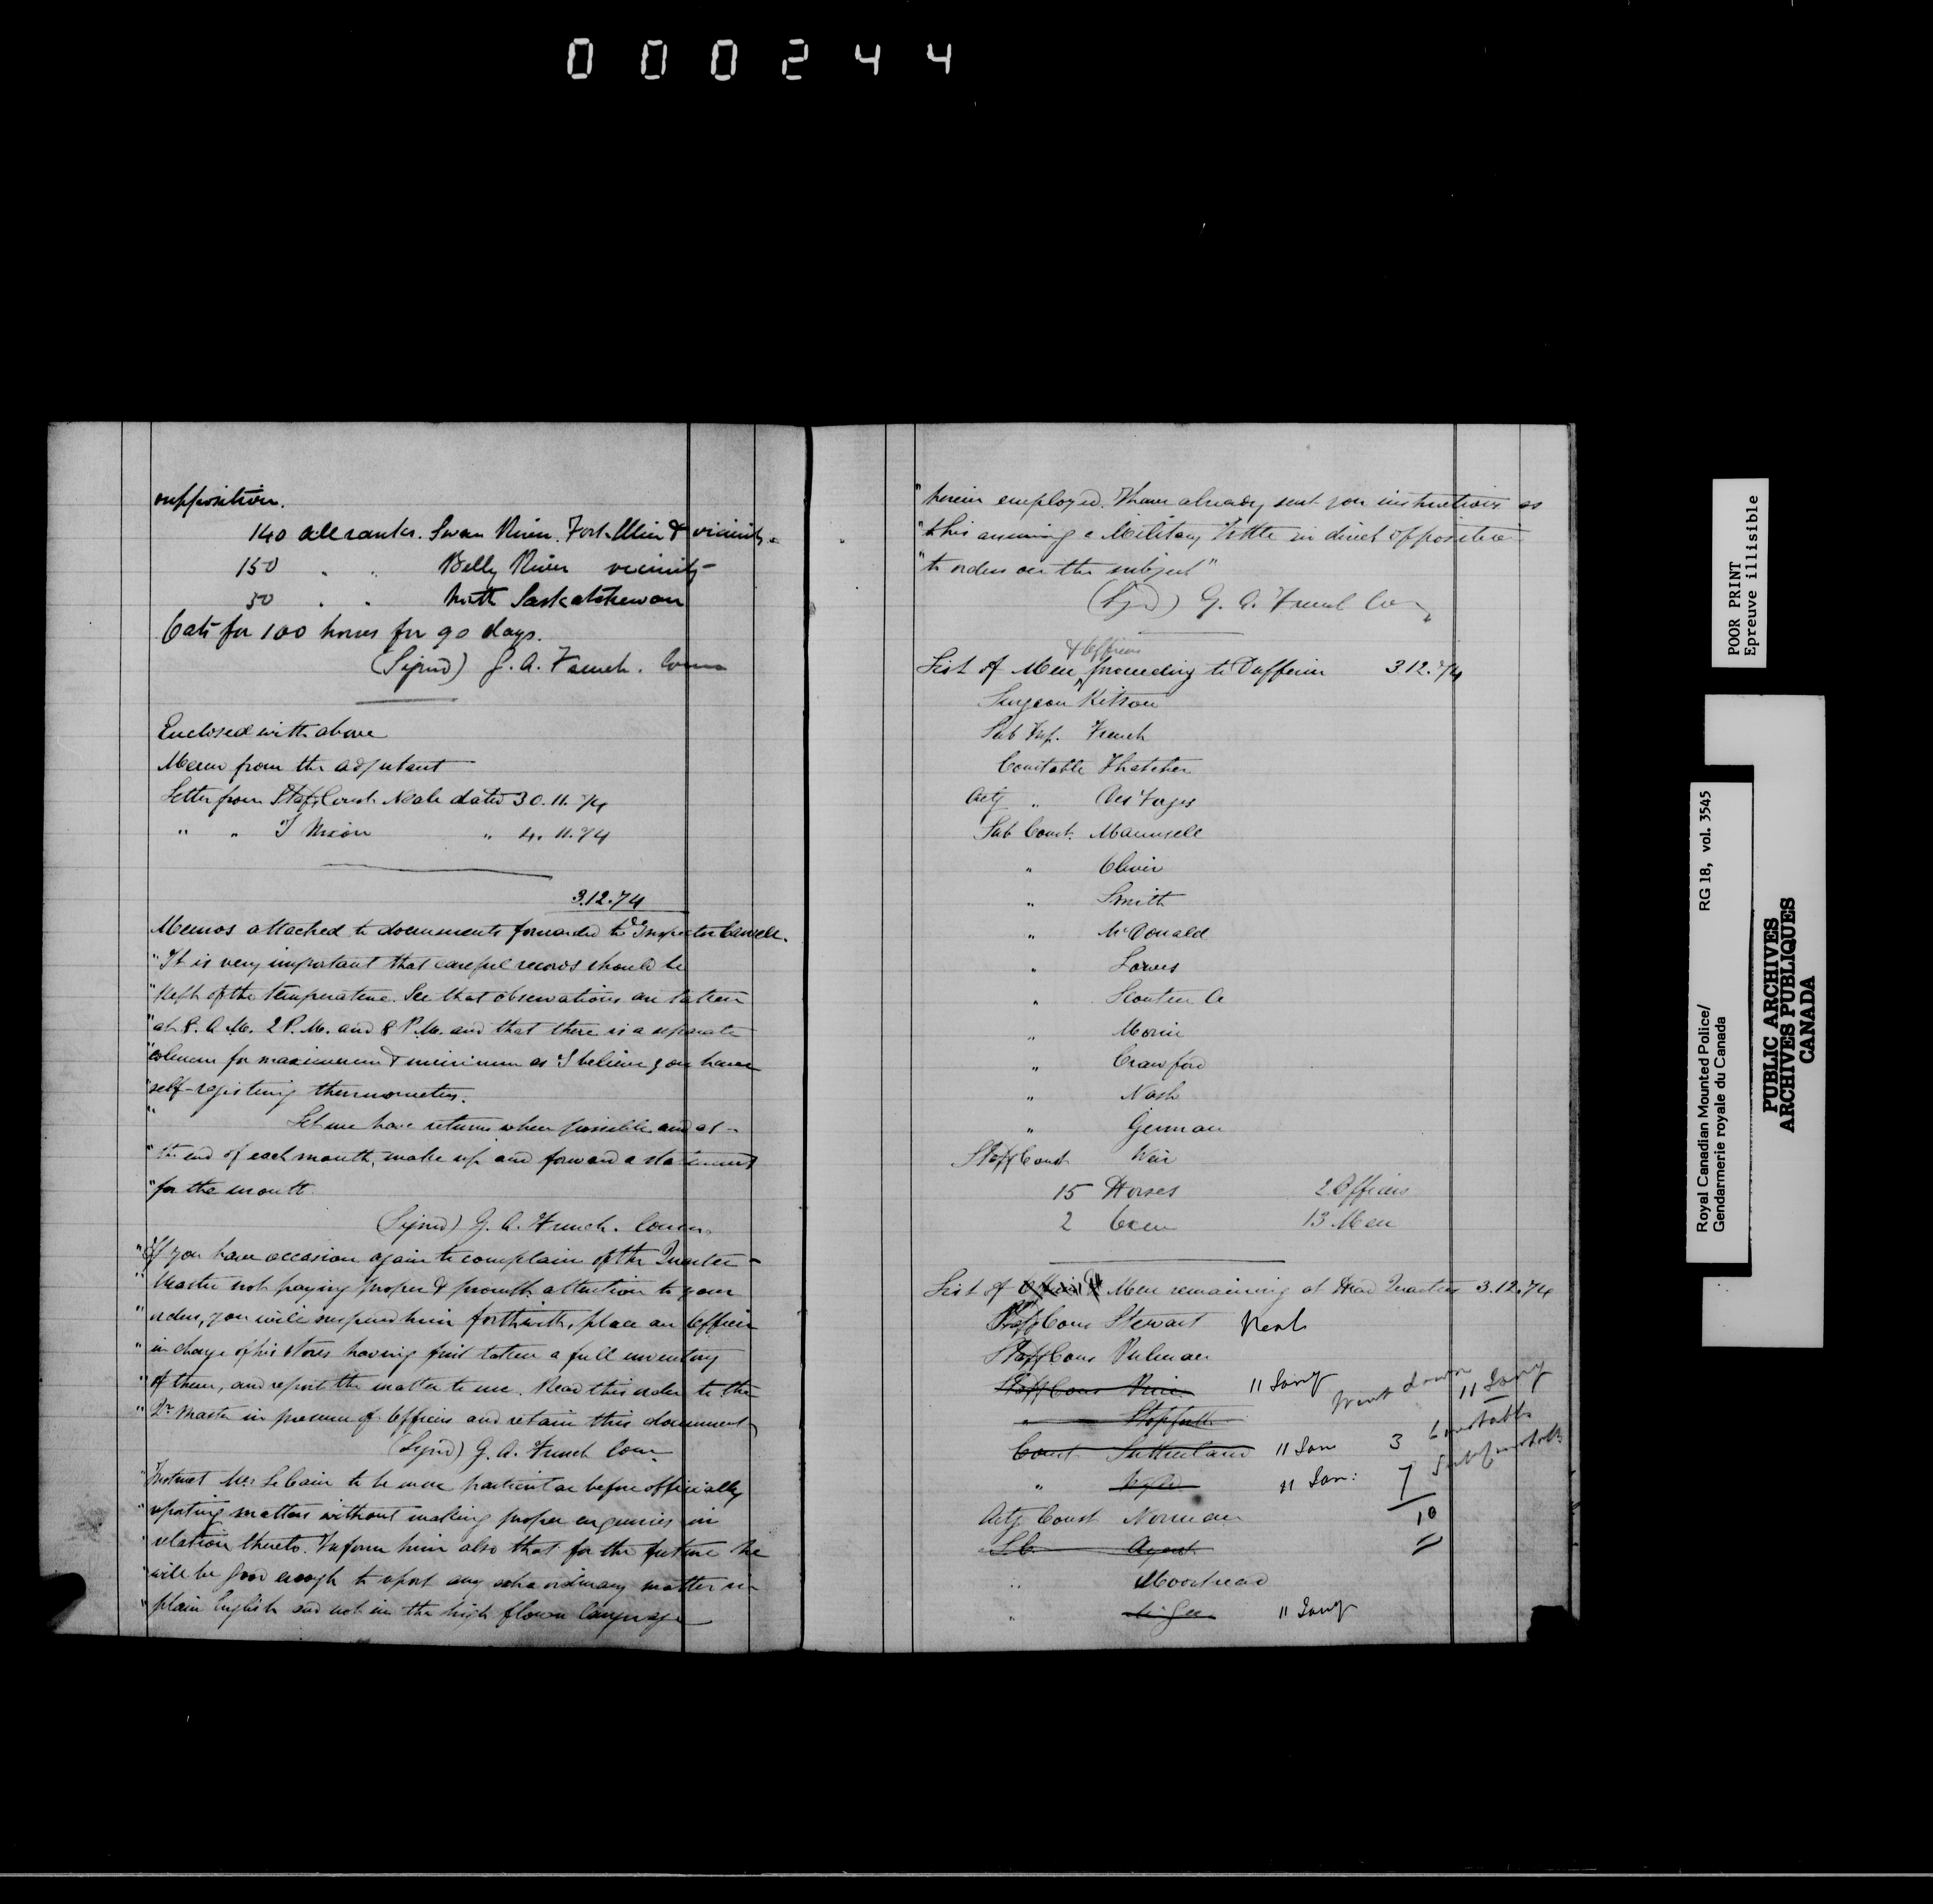 000244
supposition.
140 all ranks. Swan River. Fort Ellice & vicinity.
150 " " Belly River vicinity
50 " " North Saskatchewan
Oats for 100 horses for 90 days.
(Signed) G. A. French. Comm
Enclosed with above
Memo from the adjutant
Letter from Staff Const. Neale dated 30.11.74
" " T Nixon " 4.11.74
3.12.74
Memos attached to documents forwarded to Inspector Carvell.
"It is very important that careful records should be
"kept of the temperature. See that observations are taken
"at 8. A.M. 2 P.M. and 8 P.M. and that there is a separate
"column for maximum & minimum as I believe you have
"self-registing thermometers.
" Let me have returns when possible and at
"the end of each month, make up and forward a statement
"for the month.
(Signed) G. A. French. Comm.
"If you have occasion again to complain of the Quarter-
"Master not paying proper & prompt attention to your
"orders, you will suspend him forthwith, place an Officer
"in charge of his stores having first taken a full inventory
"of them, and report the matter to me. Read this order to the
"Qr. Master in presence of Officers and retain this document
(Signd) G. A. French Com.
"Instruct Mr LeCain to be more particular before officially
"reporting matters without making proper enquiries in
"relation thereto. Inform him also that for the future he
"will be good enough to report any extraordinary matter in
"plain English and not in the high flown language
"herein employed. I have already sent you instructions as
"this assuming a Military title in direct opposition
"to orders on the subject"
(Sgd) G. A. French Com
& Officers
List of Men proceeding to Dufferin 3.12.74
Surgeon Kittson
Sub Insp. French
Constable Thatcher
Actg " Des Forges
Sub Const. Maunsell
" Oliver
" Smith
" McDonald
" Lowes
" Scouten A
" Morin
" Crawford
" Nash
" German
Staff Const Weir
15 Horses 2 Officers
2 Oxen 13 Men
List of Men remaining at Head Quarters 3.12.74
Staff Cons Stewart Neale
Staff Cons Pulman
Staff Cons 11 Jany Went down 11 Jany
"
Const Sutherland 11 Jan 3 Constable
" 11 Jan: 7 Subconstable
Actg Const Norman 10
S.C. Agent
" Moorhead
" 11 Jany
POOR PRINT
Epreuve illisible
Royal Canadian Mounted Police/ RG 18, vol. 3545
Gendarmerie royale du Canada
PUBLIC ARCHIVES
ARCHIVES PUBLIQUES
CANADA